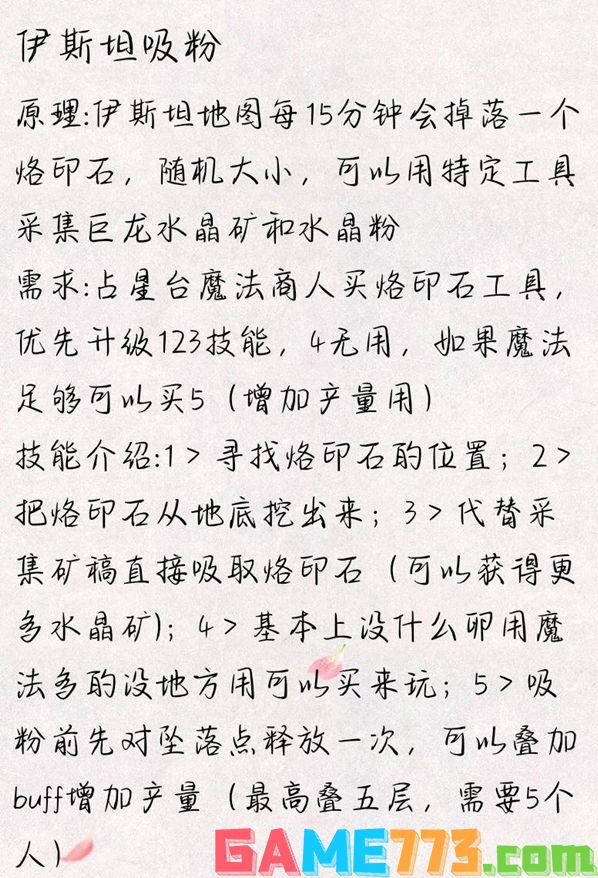 伊斯坦吸粉
原理:伊斯坦地图每15分钟会掉落一个
烙印石，随机大小，可以用特定工具
采集巨龙水晶矿和水晶粉
需求:占星台魔法商人买烙印石工具，
优先升级123技能，4无用，如果魔法
足够可以买5（增加产量用）
技能介绍:1＞寻找烙印石的位置；2＞
把烙印石从地底挖出来；3＞代替采
集矿稿直接吸取烙印石（可以获得更
多水晶矿)；4＞基本上没什么卵用魔
法多的没地方用可以买来玩；5＞吸
粉前先对坠落点释放一次，可以叠加
buff增加产量（最高叠五层，需要5个
人）
GAME773.com